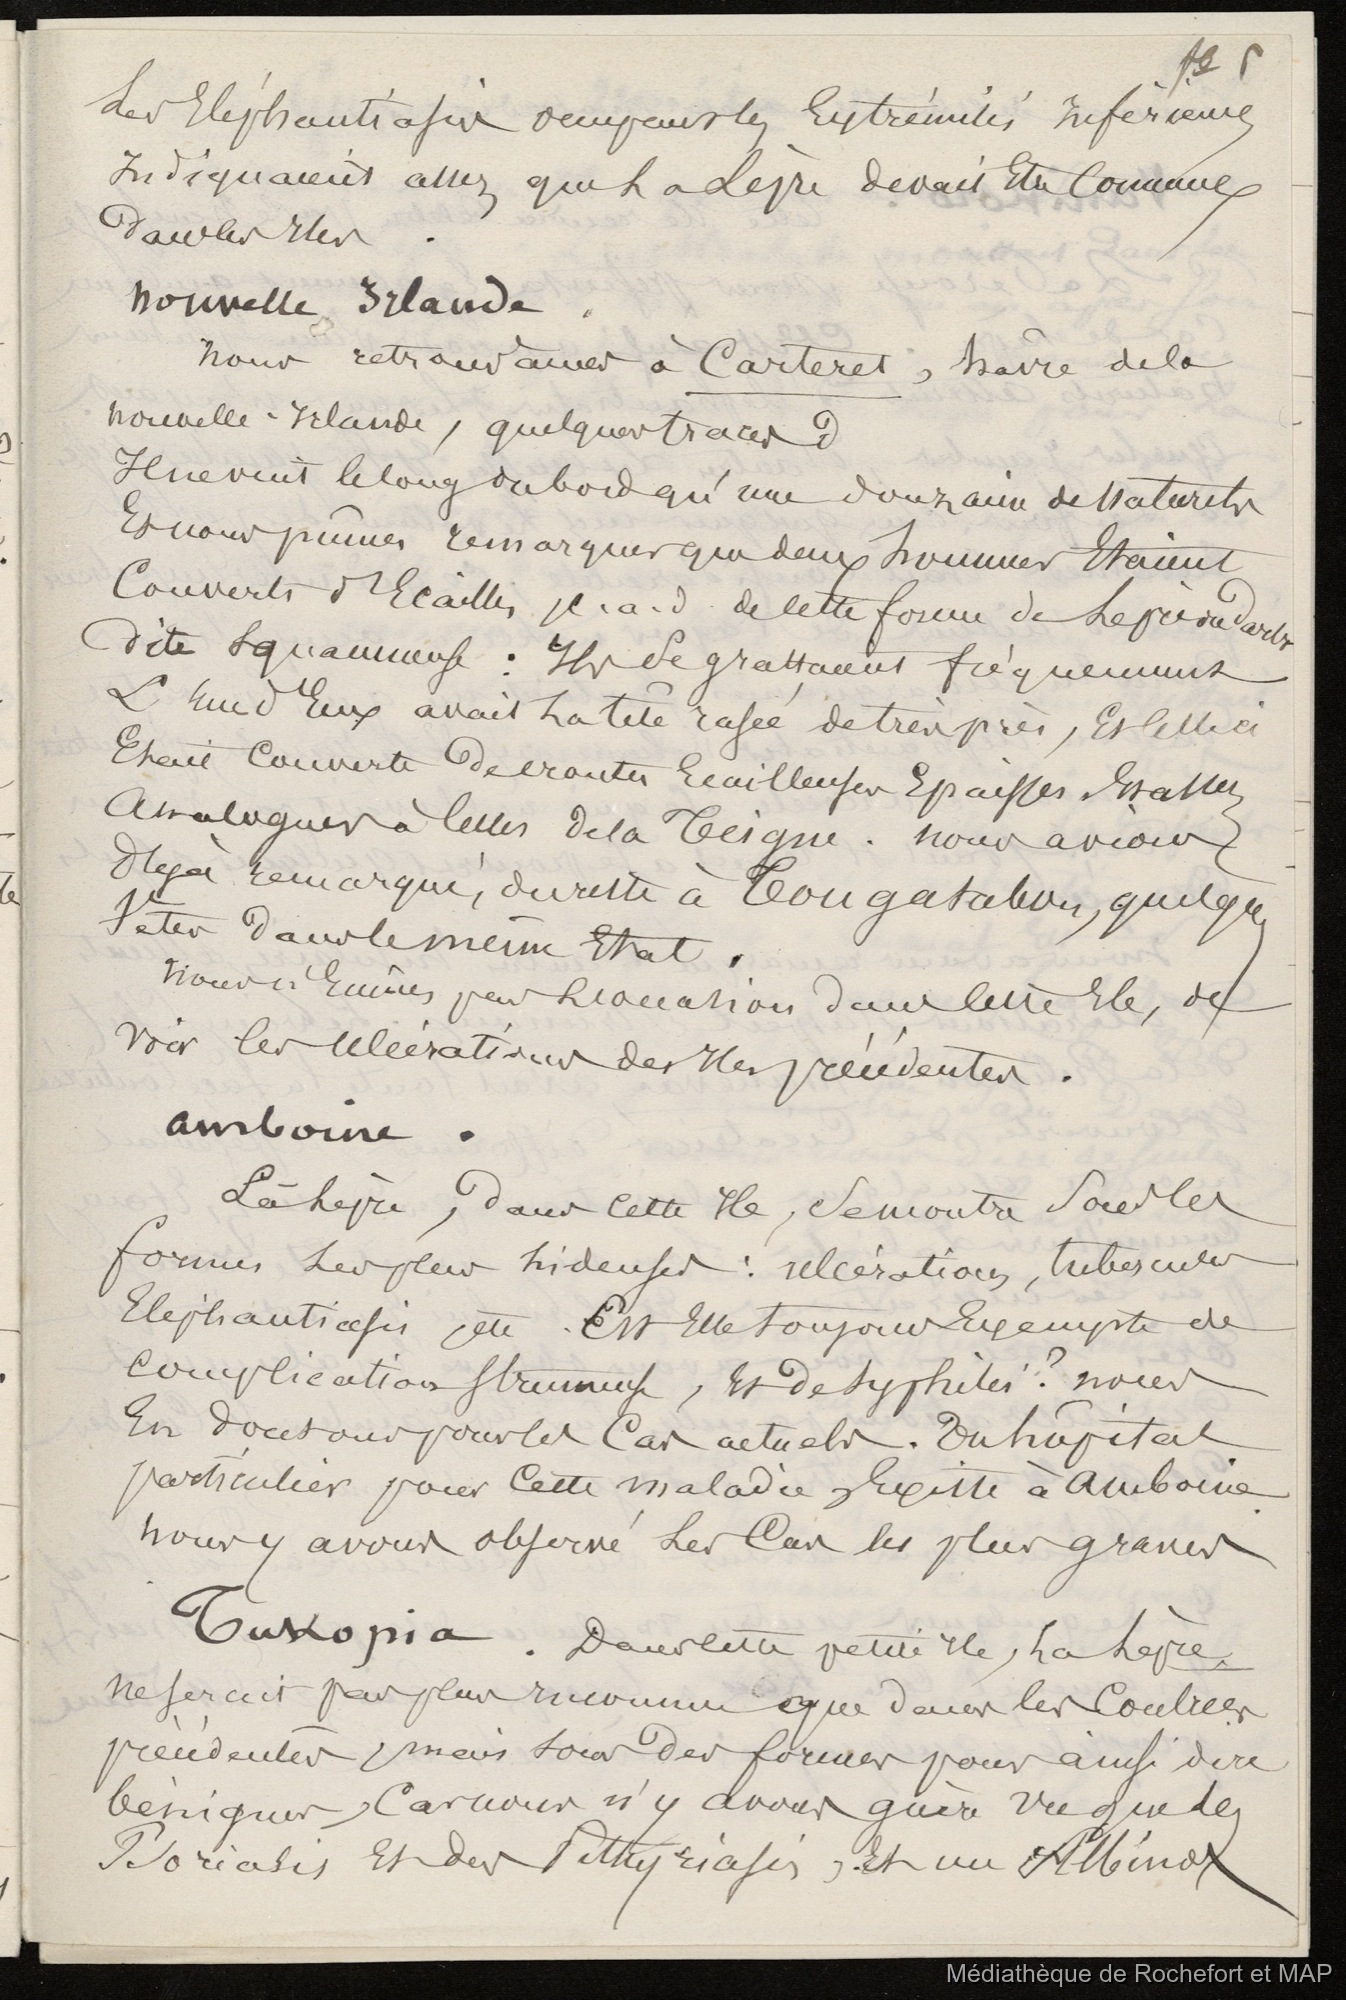 Les Eléphantiasis occupant les Extrémités Inférieures
Indiquaient assez que La Lèpre devait Etre Commune
Dans les Iles .
Nouvelle Irlande .
Nous retrouvâmes à Carteret , hâvre de la
Nouvelle-Irlande , quelques traces D
Il ne vint le long du bord qu'une douzaine de Naturels
Et nous pûmes remarquer que deux hommes Etaient
Couverts d'Ecailles , c.a.d. de cette forme de Lèpre ou Dartre
Dite Squammeuse : Ils Se grattaient fréquemment
L'un d'Eux avait La tête rasée de très près , Et celle ci
Etait Couverte De croutes Ecailleuses Epaisses Et assez
Analogues à Celles De la Teigne . Nous avions
Déjà remarqué , du reste à Tongatabou , quelques
Têtes Dans le même Etat .
Nous n'Eûmes pas L'occasion Dans cette Ile , de
Voir les Ulcérations des Iles précédentes .
Amboine .
La Lèpre , Dans cette Ile , Se montra Sous les
formes Les plus hideuses : ulcérations , tubercules
Elephantiasis , etc . Est Elle toujours Exempte de
Complication Strumeuse , Et De Syphilis ? Nous
En doutons pour les Cas actuels . Un hôpital
particulier pour Cette maladie , Existe à Amboine
Nous y avons observé Les Cas les plus graves
Tukopia . Dans cette petite Ile , La Lèpre ,
Ne serait pas plus inconnue que dans les Contrées
précédentes , mais sous Des formes pour ainsi dire
bénignes , Car nous n'y avons guère vu que des
Psoriasis Et des Pithyriasis , Et un Albinos
Médiathèque de Rochefort et MAP